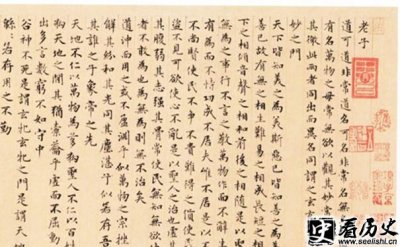 老子
道可道非常道名可名非常名無
有名萬物之母常無欲以觀其妙
其徼此兩者同出而異名同謂之玄
妙之門
天下皆知美之為美斯惡已皆知善
善已故有無之相生難易之相成長短之相
下之相傾音聲之相和前後之相隨是以
無為之事行不言之教萬物作而不辭
有為而不恃功成不居夫唯不居是以
不尚賢使民不爭不貴難得之貨使民
盜不見可欲使心不亂是以聖人之治也虛
其腹弱其志強其骨常使民無知無欲
者不敢為也為無為則無不治矣
道沖而用之或不盈淵乎似萬物之宗挫
解其紛和其光同其塵湛兮似若存吾
其誰之子象帝之先
天地不仁以萬物為芻狗聖人不仁以百
狗天地之間其猶橐籥乎虛而不屈動
出多言數窮不如守中
谷神不死是謂玄牝玄牝之門是謂天地
綿綿若存用之不勤
看历史
www.seelishi.cn